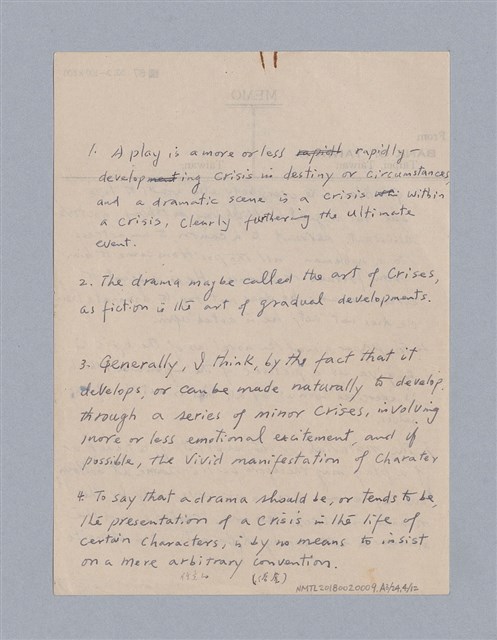 MEMO
From
1. A play is a more or less rapidly rapidly-
developing crisis in destiny or circumstances,
and a dramatic scene is a crisis within
a crisis, clearly furthering the ultimate
event.
2. The drama maybe called the art of Crises,
as fiction is the art of gradual developments.
3. Generally, I think, by the fact that it
develops, or can be made naturally to develop,
through a series of minor Crises, involving
more or less emotional excitement, and if
possible, the vivid manifestation of Charater
4. To say that a drama should be, or tends to be,
the presentation of a Crisis in the life of
certain characters, is by no means to insist
on a mere arbitrary convention.
NMTL20180020009, A3/24, 4/12